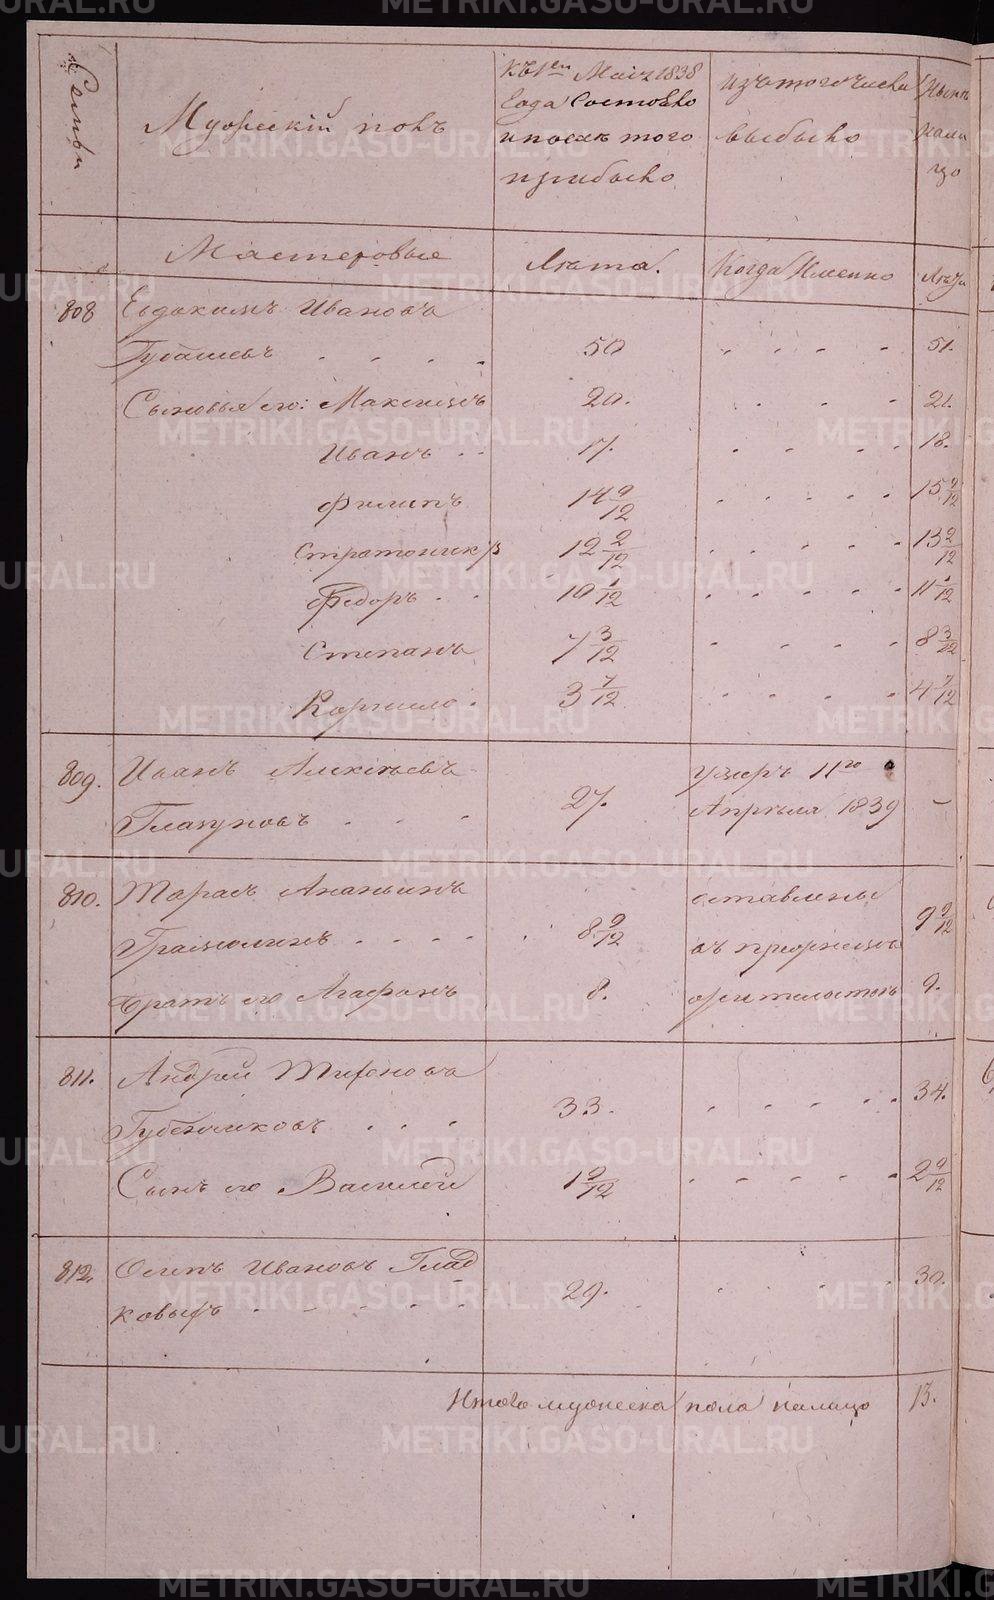 Семьи
Мужескій полъ
къ 1ему Маія 1838
года состояло
и после того
прибыло
изъ того числа
выбыло
Ныне
нали
цо
Мастеровые
Лета.
Когда Именно
Лета
808 Евдокимъ Ивановъ
Губашевъ . . . . 50 . . . . 51.
Сыновья его: Максимъ 20. . . . 21.
Иванъ . . 17. . . . . 18.
Филипъ 14 9/12 . . . . . 15 9/12
Стратоникъ 12 2/12 . . . . . 13 2/12
Федоръ . . 10 1/12 . . . . . 11 1/12
Степанъ 7 3/12 . . . . 8 3/12
Корнило . 3 7/12 . . . . 4 7/12
809. Иванъ Алексеевъ
Глазуновъ . . . 27. умеръ 11го
Апреля 1839 –
810. Тарасъ Ананьинъ
Грамолинъ . . . . 8 9/12 оставлены 9 9/12
въ
братъ его Агафонъ 8. 9.
811. Андрей Тифоновъ
Губенчиковъ . . . 33. . . . . . 34.
Сынъ его Василей 1 9/12 . . . . . 2 9/12
812. Осипъ Ивановъ Глад
ковыхъ . . . . . 29. . . . . 30.
Итого мужеска пола налицо 13.
METRIKI.GASO-URAL.RU